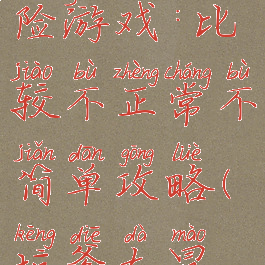 险游戏：比
jiào bù zhèng cháng bù
较不正常不
jiǎn dān gōng lüè
简单攻略(
kēng diē dà mào